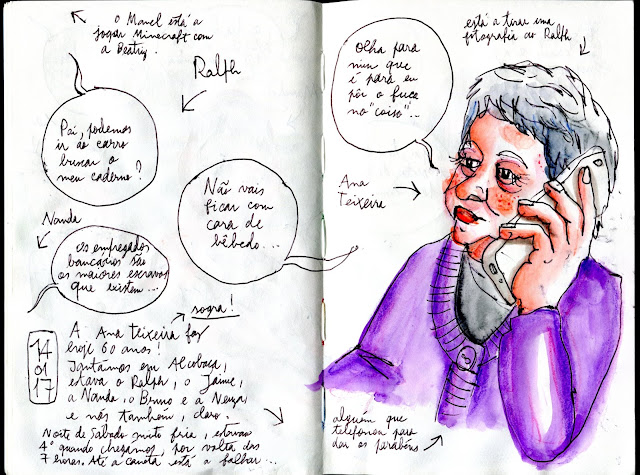 O Manel está a
jogar Minecraft com
a Beatriz.
Ralph
Pai, podemos
ir ao carro
buscar o
meu caderno?
Nanda
Não vais
ficar com
cara de
bêbedo...
Os empregados
bancários são
os maiores escravos
que existem...
sogra!
14
01
17
A Ana Teixeira faz
hoje 60 anos!
Jantámos em Alcobaça,
estava o Ralph, o Jaime,
a Nanda, o Bruno e a Neuza,
e nós também, claro.
Noite de Sábado muito fria, estavam
4º quando chegámos, por volta das
7 horas. Até a caneta está a falhar...
Olha para
mim que
é para eu
pôr o fuce
no "coiso"...
está a tirar uma
fotografia ao Ralph
Ana
Teixeira
alguém que
telefonou para
dar os parabéns